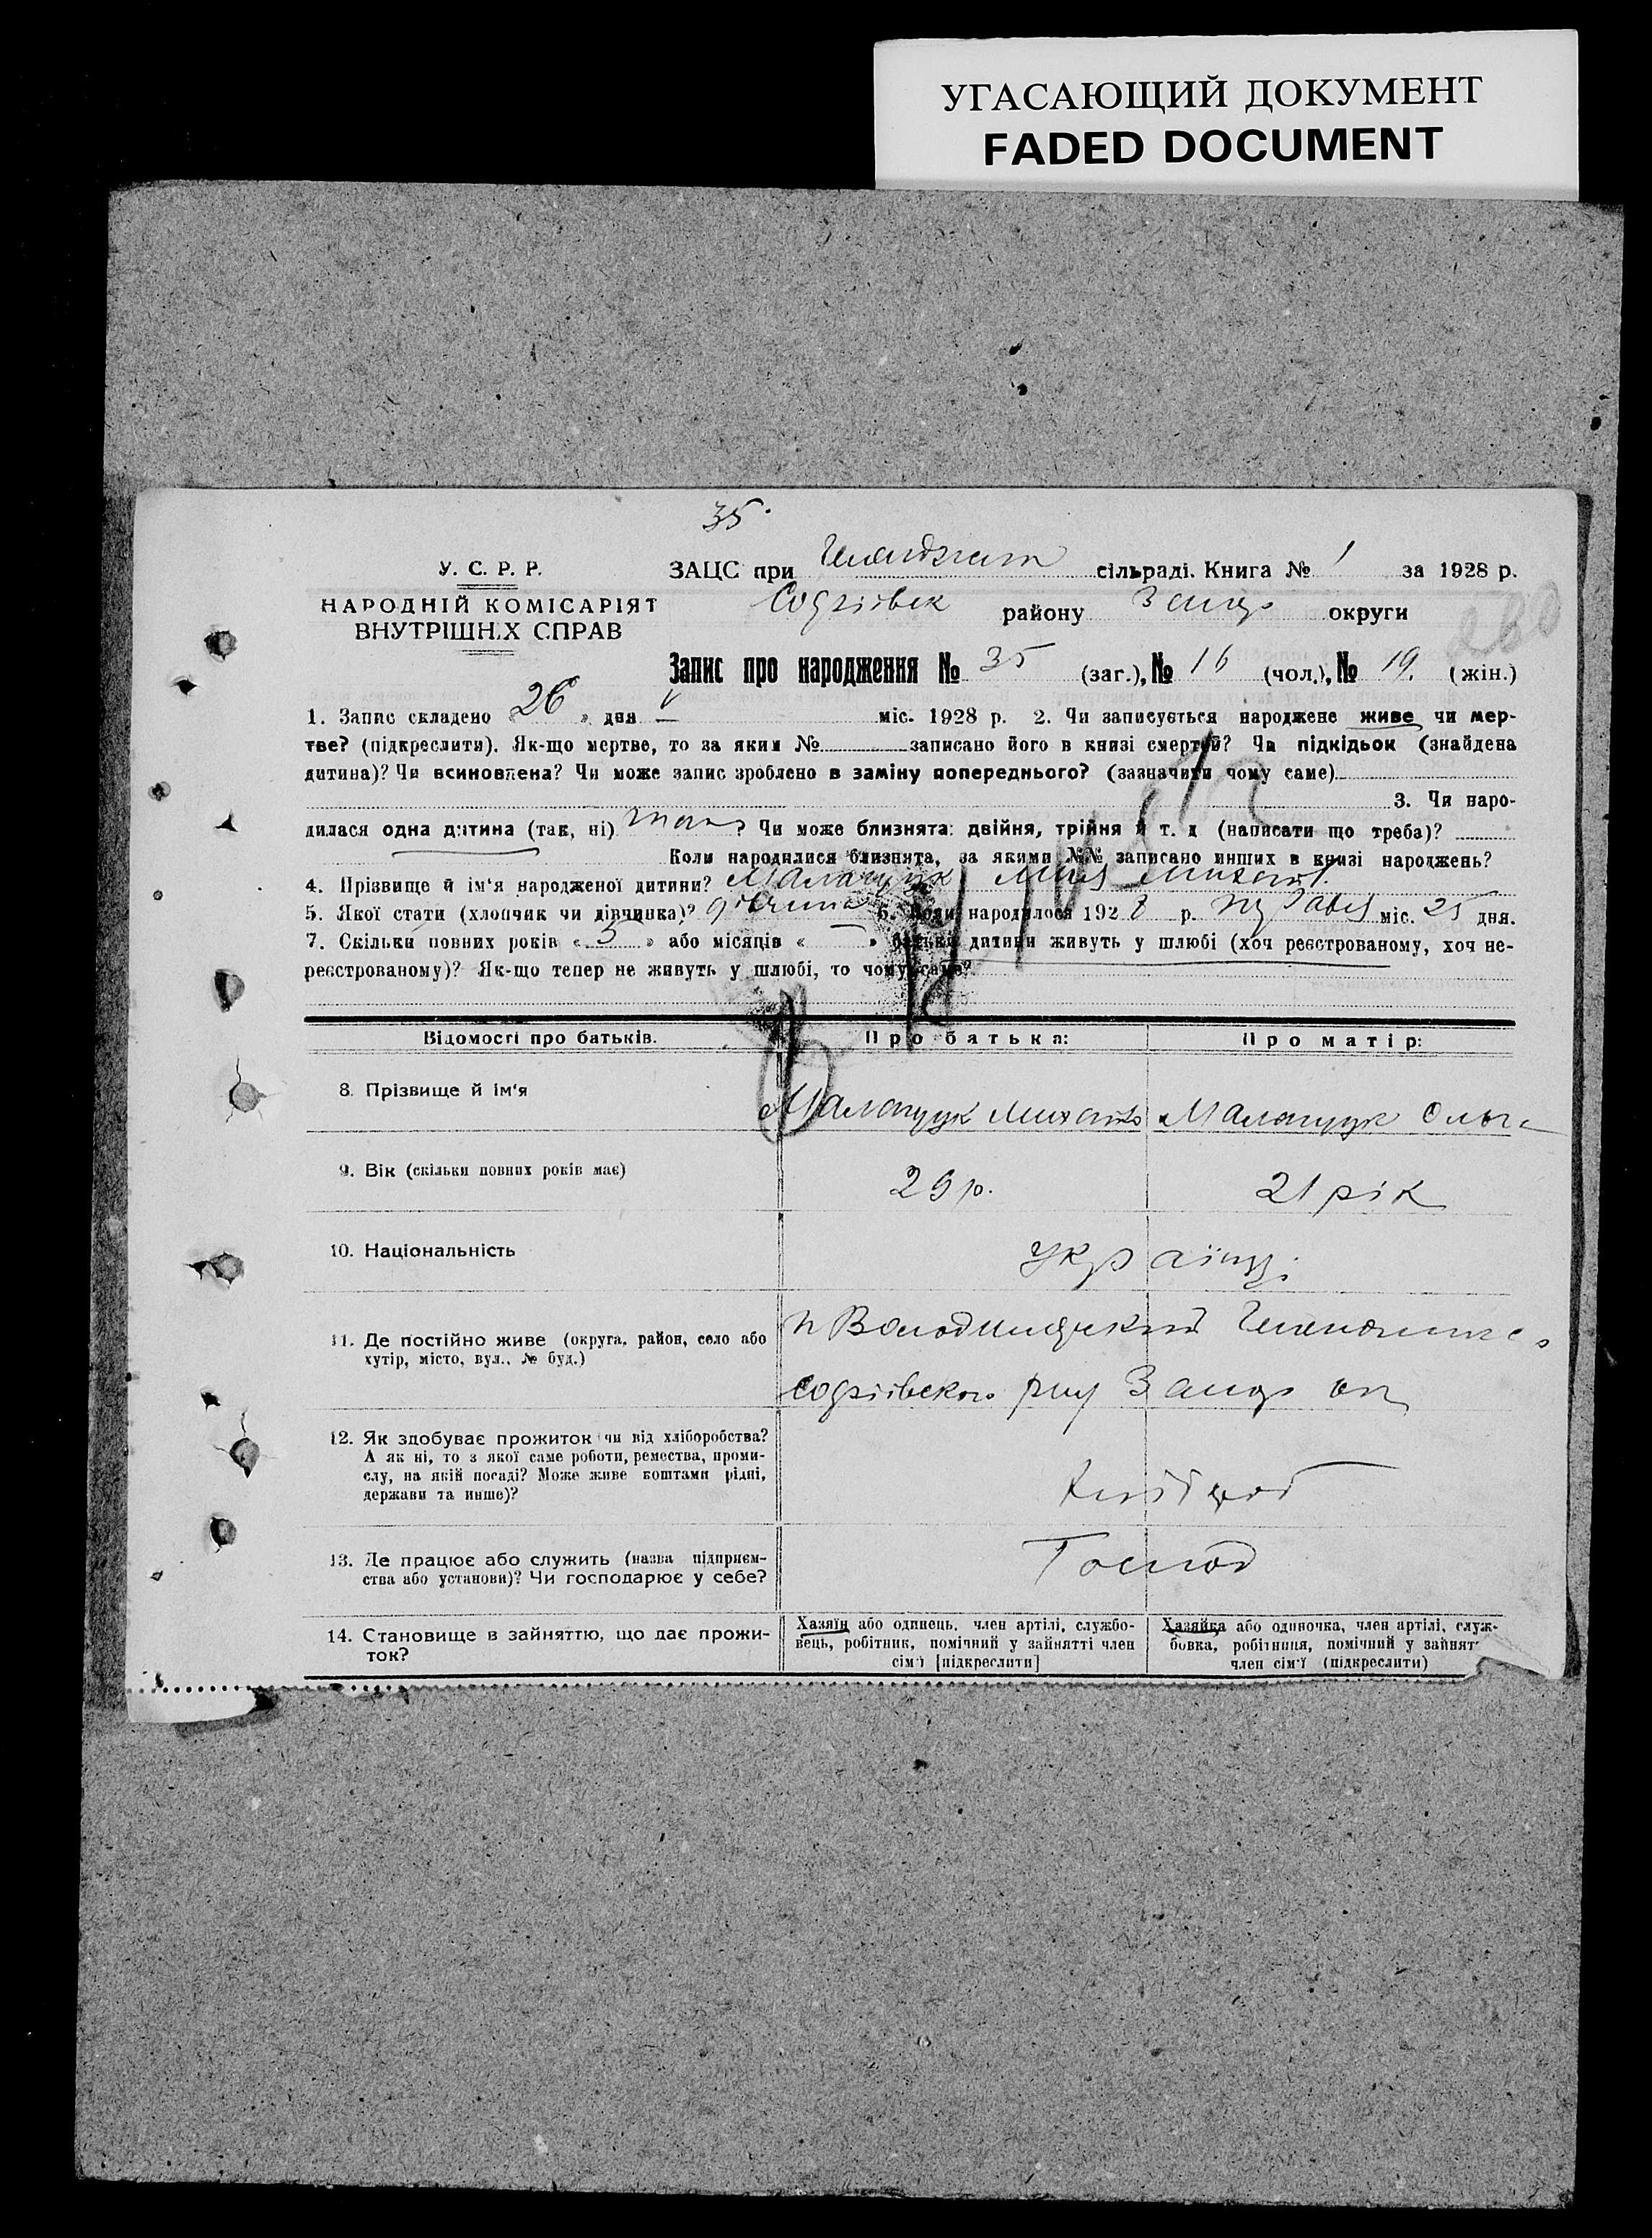 УГАСАЮЩИЙ ДОКУМЕНТ
FADED DOCUMENT
35.
У. С. Р. Р.
НАРОДНІЙ КОМІСАРІЯТ
ВНУТРІШНІХ СПРАВ
ЗАЦС при сільраді. Книга № 1 за 1928 р.
району округи
Запис про народження № 35 (заг.), № 16 (чол.), № 19. (жін.)
1. Запис складено « 26 » дня V міс. 1928 р. 2. Чи записується народжене живе чи мер-
тве? (підкреслити). Як-що мертве, то за яким № записано його в книзі смертей? Чи підкідьок (знайдена
дитина)? Чи всиновлена? Чи може запис зроблено в заміну попереднього? (зазначити чому саме)
3. Чи наро-
дилася одна дитина (так, ні) так? Чи може близнята: двійня, трійня й т. д (написати що треба)?
Коли народилися близнята, за якими №№ записано инших в книзі народжень?
4. Прізвище й ім‘я народженої дитини?
5. Якої стати (хлопчик чи дівчинка)? дівчина 6. Коли народилося 1928 р. травня міс. 25 дня.
7. Скільки повних років « 5 » або місяців « — » батьки дитини живуть у шлюбі (хоч реєстрованому, хоч не-
реєстрованому)? Як-що тепер не живуть у шлюбі, то чому саме?
Відомості про батьків.
Про батька:
Про матір:
8. Прізвище й ім‘я
9. Вік (скільки повних років має)
29 р.
21 рік
10. Національність
Українці
11. Де постійно живе (округа, район, село або
хутір, місто, вул., № буд.)
12. Як здобуває прожиток чи від хліборобства?
А як ні, то з якої саме роботи, ремества, проми-
слу, на якій посаді? Може живе коштами рідні,
держави та инше)?
Хлібороб
13. Де працює або служить (назва підприєм-
ства або установи)? Чи господарює у себе?
Господ
14. Становище в зайняттю, що дає прожи-
ток?
Хазяїн або одинець, член артілі, службо-
вець, робітник, помічний у зайнятті член
сім‘ї [підкреслити]
Хазяйка або одиночка, член артілі, служ-
бовка, робітниця, помічний у зайнят
член сім‘ї (підкреслити)